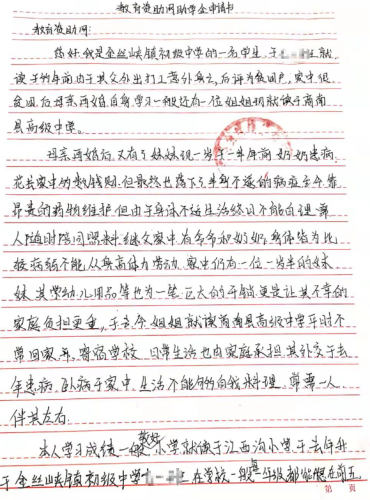 教育资助网助学金申请书
教育资助网:
您好,我是金丝峡镇初级中学的一名学生,于就
读于 年前由于其父外出打工意外身亡,后评为贫困户,家中很
贫困后母亲再婚,自身学习一般还有一位姐姐现就读于商南
县高级中学。
母亲再婚后,又有了妹妹现一岁于一年前奶奶患病,
花去家中的数钱财,但最终也落下了半身不遂的病症至今靠
昂贵的药物维护但由于身体不适生活终日不能自理需
人随时陪同照料继父家中有爷爷和奶奶,身体皆为比
较病弱不能从事高体力劳动,家中仍有一位一岁半的妹
妹,其劳幼儿用品等也为一笔巨大的开销更是让其不幸的
家庭负担更重,于至今姐姐就读商南县高级中学平时不
常回家来,寄宿学校,日常生活也由家庭承担,其外交于去
年患病,卧病于家中,生活不能够向我料理,常需一人
伴其左右.
本人学习成绩一般较好小学就读于江西沟小学于去年升
于金丝峡镇初级中学 在学校一般每年级都能健在前五
第 页